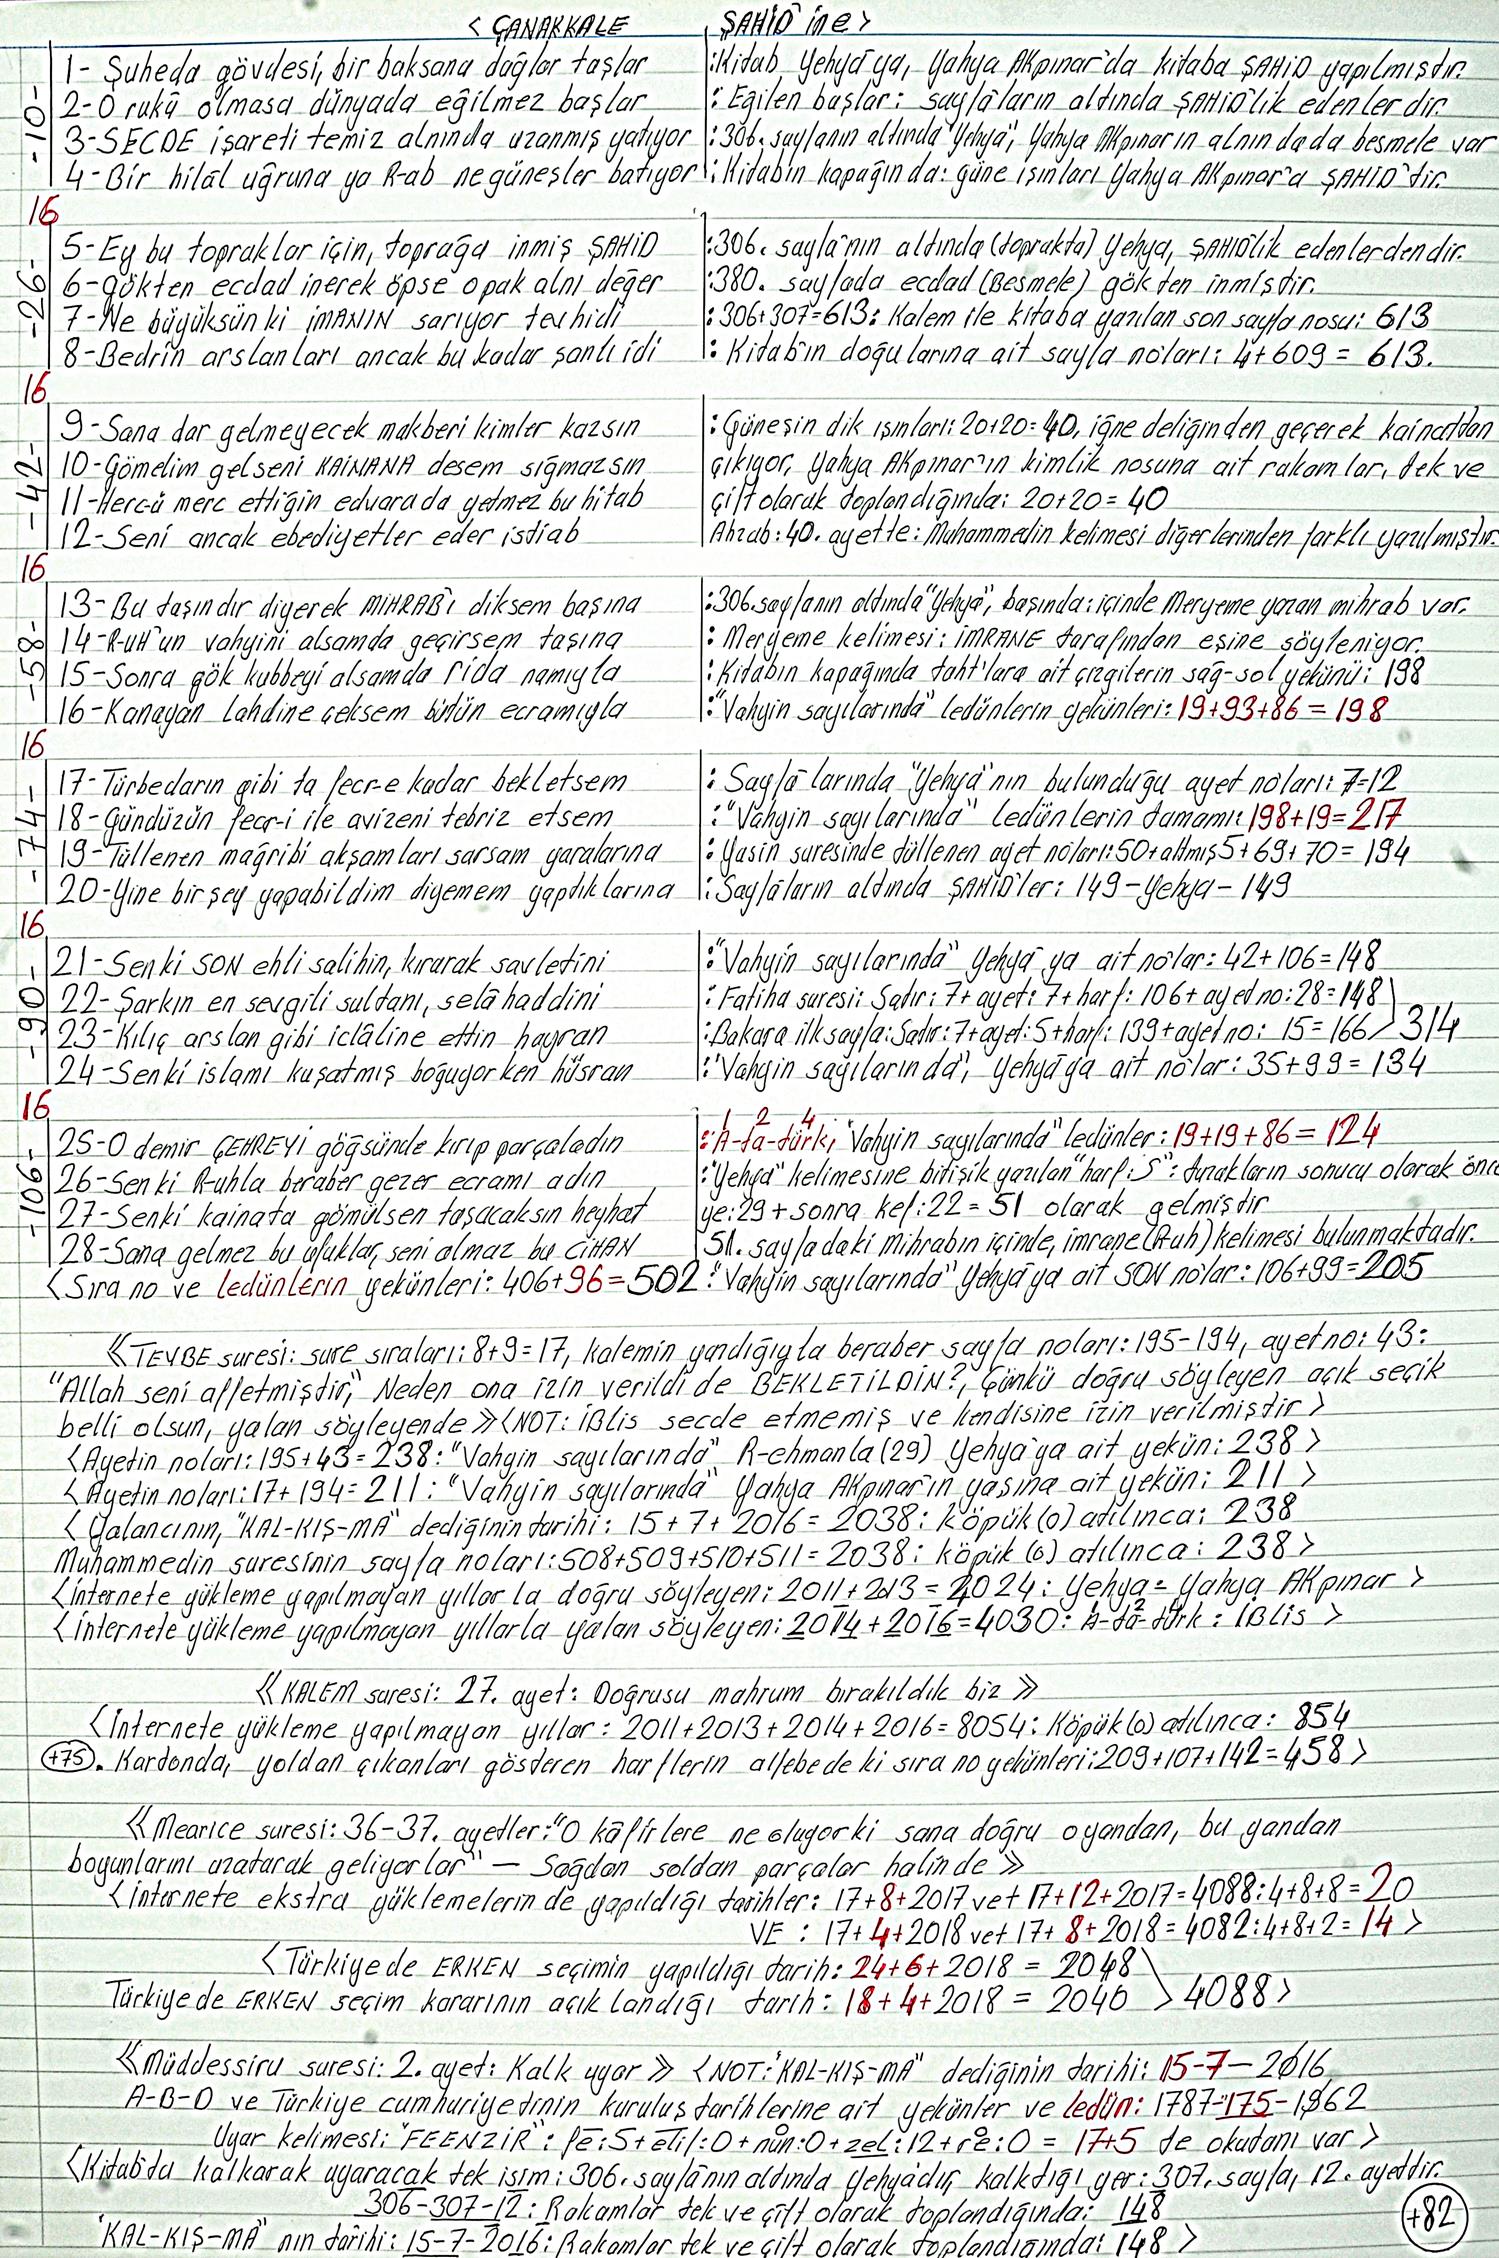 < ÇANAKKALE ŞAHİD'ine >
1- Şuheda gövdesi, bir baksana dağlar taşlar :Kitab Yehyâ'ya, Yahya AKpınar'da kitaba ŞAHİD yapılmıştır.
2-O rukû olmasa dünyada eğilmez başlar : Eğilen başlar: sayfâların altında ŞAHİD'lik edenlerdir.
3-SECDE işareti temiz alnında uzanmış yatıyor :306. sayfanın altında "Yehyâ", Yahya AKpınar'ın alnındada besmele var
4-Bir hilâl uğruna ya R-ab ne güneşler batıyor : Kitabın kapağında: güne ışınları Yahya AKpınar'a ŞAHİD'tir.
-10-
16
5-Ey bu topraklar için, toprağa inmiş ŞAHİD :306. sayfâ'nın altında (toprakta) Yehya, ŞAHİD'lik edenlerdendir.
6-Gökten ecdad inerek öpse o pak alnı değer :380. sayfada ecdad (Besmele) gökten inmiştir.
7-Ne büyüksün ki İMANIN sarıyor tevhidi :306+307=613: Kalem ile kitaba yazılan son sayfa nosu: 613
8-Bedrin arslanları ancak bu kadar şanlı idi : Kitab'ın doğularına ait sayfa noları: 4+609= 613.
-26-
16
9-Sana dar gelmeyecek makberi kimler kazsın : Güneşin dik ışınları: 20+20=40, iğne deliğinden geçerek kainattan
10-Gömelim gel seni KAİNANA desem sığmazsın çıkıyor, Yahya AKpınar'ın kimlik nosuna ait rakamlar, tek ve
11-Herc-ü merc ettiğin edvara da yetmez bu kitab çift olarak toplandığında: 20+20=40
12-Seni ancak ebediyetler eder istiab Ahzab:40. ayette: Muhammedin kelimesi diğerlerinden farklı yazılmıştır.
-42-
16
13-Bu taşındır diyerek MİHRAB'ı diksem başına :306.sayfanın altında "Yehyâ", başında: içinde Meryeme yazan mihrab var.
14-R-uH'un vahyini alsamda geçirsem taşına : Meryeme kelimesi: İMRANE tarafından eşine söyleniyor.
15-Sonra gök kubbeyi alsamda rida namıyla :Kitabın kapağında taht'lara ait çizgilerin sağ-sol yekünü: 198
16-Kanayan lahdine çeksem bütün ecramıyla :"Vahyin sayılarında" ledünlerin yekünleri: 19+93+86=198
-58-
16
17-Türbedarın gibi ta fecr-e kadar bekletsem : Sayfâlarında "Yehyâ"nın bulunduğu ayet noları: 7-12
18-Gündüzün fecr-i ile avizeni tebriz etsem :"Vahyin sayılarında" ledünlerin tamamı: 198+19=217
19-Tüllenen mağribi akşamları sarsam yaralarına : Yasin suresinde tüllenen ayet noları:50+altmış5+69+70=194
20-Yine bir şey yapabildim diyemem yaptıklarına : Sayfâların altında ŞAHİD'ler: 149-Yehya-149
-74-
16
21-Senki SON ehli salihin, kırarak savletini :"Vahyin sayılarında" Yehyâ'ya ait nolar: 42+106=148
22-Şarkın en sevgili sultanı, selâhaddini : Fatiha suresi: Satır: 7+ayet: 7+harf: 106+ayet no:28=148
23-Kılıç arslan gibi iclâline ettin hayran :Bakara ilk sayfa: Satır:7+ayet:5+harf: 139+ayet no: 15=166 > 314
24-Senki islamı kuşatmış boğuyorken hüsran :"Vahyin sayılarında", Yehyâ'ya ait nolar: 35+99=134
-90-
16
25-O demir ÇEHREYİ göğsünde kırıp parçaladın : A-ta-türk, "Vahyin sayılarında" ledünler: 19+19+86=124
1 2 4
26-Senki R-uhla beraber gezer ecramı adın :"Yehyâ" kelimesine bitişik yazılan "harf:S": durakların sonucu olarak önce
27-Senki kainata gömülsen taşacaksın heyhat ye:29+sonra kef:22=51 olarak gelmiştir
28-Sana gelmez bu ufuklar, seni almaz bu CİHAN 51. sayfadaki Mihrabın içinde, imrane(R-uh) kelimesi bulunmaktadır.
-106-
<Sıra no ve ledünlerin yekünleri: 406+96=502 : "Vahyin sayılarında" Yehyâ'ya ait SON nolar: 106+99=205
《TEVBE suresi: sure sıraları: 8+9=17, kalemin yandığıyla beraber sayfa noları: 195-194, ayet no: 43:
"Allah seni affetmiştir," Neden ona izin verildi de BEKLETİLDİN?, Çünkü doğru söyleyen açık seçik
belli olsun, yalan söyleyende》<NOT: İBLİS secde etmemiş ve kendisine izin verilmiştir>
<Ayetin noları: 195+43=238: "Vahyin sayılarında" R-ehmanla (29) Yehyâ'ya ait yekün: 238>
<Ayetin noları: 17+194=211: "Vahyin sayılarında" Yahya AKpınar'ın yaşına ait yekün: 211>
<Yalancının, "KAL-KIŞ-MA" dediğinin tarihi: 15+7+2016=2038: köpük (0) atılınca: 238
Muhammedin suresinin sayfa noları: 508+509+510+511=2038: köpük (0) atılınca: 238>
<internete yükleme yapılmayan yıllarla doğru söyleyen: 2011+2013=4024: Yehya=Yahya AKpınar>
<internete yükleme yapılmayan yıllarla yalan söyleyen: 2014+2016=4030: A-ta-türk: İBLİS>
《KALEM suresi: 27. ayet: Doğrusu mahrum bırakıldık biz》
<internete yükleme yapılmayan yıllar: 2011+2013+2014+2016=8054: Köpük (0) atılınca: 854
+75. Kardonda, yoldan çıkanları gösteren harflerin alfebedeki sıra no yekünleri: 209+107+142=458>
《Mearice suresi: 36-37. ayetler: "O kâfirlere ne oluyorki sana doğru o yandan, bu yandan
boyunlarını uzatarak geliyorlar" — Sağdan soldan parçalar halinde》
<internete ekstra yüklemelerinde yapıldığı tarihler: 17+8+2017 vet 17+12+2017=4088:4+8+8=20
VE : 17+4+2018 vet 17+8+2018=4082:4+8+2=14>
<Türkiyede ERKEN seçimin yapıldığı tarih: 24+6+2018=2048
Türkiyede ERKEN seçim kararının açıklandığı tarih: 18+4+2018=2040 > 4088>
《Müddessiru suresi: 2. ayet: Kalk uyar》<NOT: "KAL-KIŞ-MA" dediğinin tarihi: 15-7-2016,
A-B-D ve Türkiye cumhuriyetinin kuruluş tarihlerine ait yekünler ve ledün: 1787-175-1962
Uyar kelimesi: "FEENZİR": fe:5+elif:0+nûn:0+zel:12+re:0=17+5 te okutanı var>
<Kitab'ta kalkarak uyaracak tek isim: 306. sayfânın altında Yehyâ'dır, kalktığı yer: 307. sayfa, 12. ayettir.
306-307-12: Rakamlar tek ve çift olarak toplandığında: 148
"KAL-KIŞ-MA" nın târihi: 15-7-2016: Rakamlar tek ve çift olarak toplandığında: 148>
+82